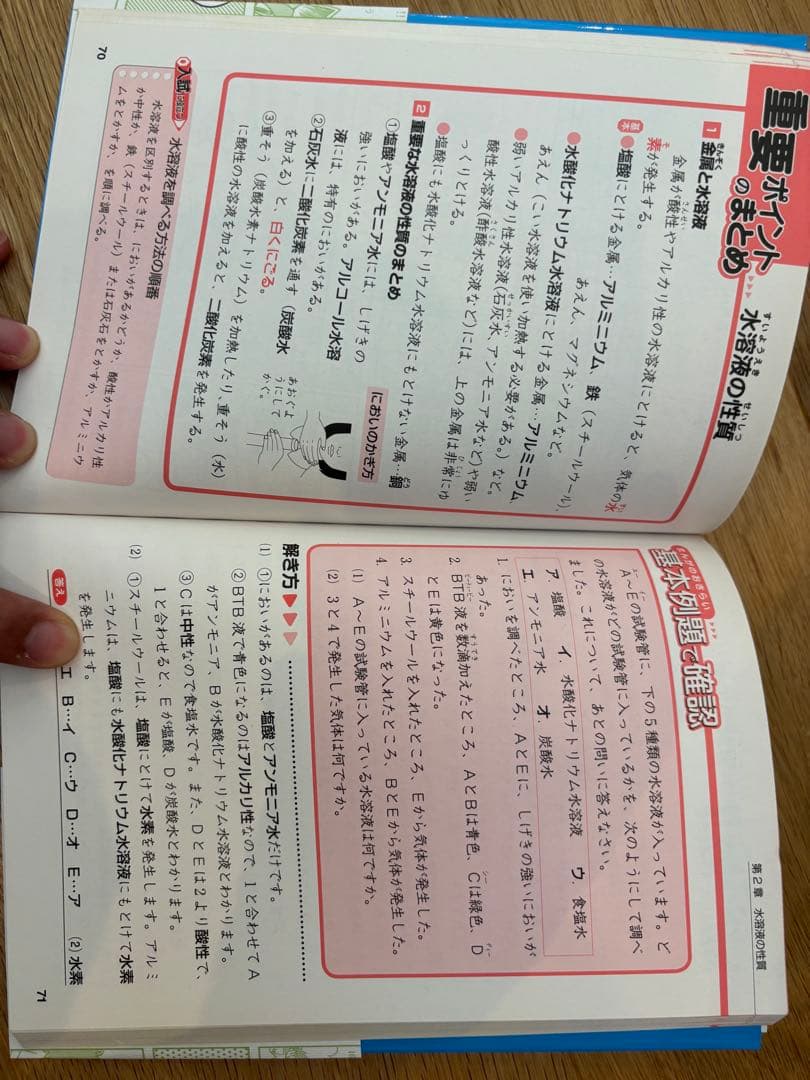 重要ポイントのまとめ
▶▶▶
水溶液の性質
すいようえき
せいしつ
1 金属と水溶液
きんぞく
金属が酸性やアルカリ性の水溶液にとけると、気体の水
さんせい
素が発生する。
そ
基本
●塩酸にとける金属…アルミニウム、鉄(スチールウール)、
あえん、マグネシウムなど。
●水酸化ナトリウム水溶液にとける金属…アルミニウム、
あえん(こい水溶液を使い加熱する必要がある。)など。
●弱いアルカリ性水溶液(石灰水、アンモニア水など)や弱い
せっかいすい
酸性水溶液(酢酸水溶液など)には、上の金属は非常にゆ
さくさん
ひじょう
っくりとける。
●塩酸にも水酸化ナトリウム水溶液にもとけない金属…銅
どう
2 重要な水溶液の性質のまとめ
①塩酸やアンモニア水には、しげきの
強いにおいがある。アルコール水溶
液には、特有のにおいがある。
②石灰水に二酸化炭素を通す(炭酸水
を加える)と、白くにごる。
③重そう(炭酸水素ナトリウム)を加熱したり、重そう(水)
に酸性の水溶液を加えると、二酸化炭素を発生する。
においのかぎ方
あおぐよ
うにして
かぐ。
入試
水溶液を調べる方法の順番
水溶液を区別するときは、においがあるかどうか、酸性かアルカリ性
か中性か、鉄(スチールウール)または石灰石をとかすか、アルミニウ
ムをとかすか、を順に調べる。
70
第2章 水溶液の性質
まんがのおさらい
基本例題で確認
▶▶▶
A〜Eの試験管に、下の5種類の水溶液が入っています。ど
の水溶液がどの試験管に入っているかを、次のようにして調べ
ました。これについて、あとの問いに答えなさい。
ア. 塩酸 イ. 水酸化ナトリウム水溶液 ウ. 食塩水
エ. アンモニア水 オ. 炭酸水
1. においを調べたところ、AとEに、しげきの強いにおいが
あった。
2. BTB液を数滴加えたところ、AとBは青色、Cは緑色、D
ビーティービー
すうてき
シー
ディー
とEは黄色になった。
3. スチールウールを入れたところ、Eから気体が発生した。
4. アルミニウムを入れたところ、BとEから気体が発生した。
(1) A〜Eの試験管に入っている水溶液は何ですか。
(2) 3と4で発生した気体は何ですか。
解き方▶▶▶
(1) ①においがあるのは、塩酸とアンモニア水だけです。
②BTB液で青色になるのはアルカリ性なので、1と合わせてA
がアンモニア、Bが水酸化ナトリウム水溶液とわかります。
③Cは中性なので食塩水です。また、DとEは2より酸性で、
1と合わせると、Eが塩酸、Dが炭酸水とわかります。
(2) ①スチールウールは、塩酸にとけて水素を発生します。アルミ
ニウムは、塩酸にも水酸化ナトリウム水溶液にもとけて水素
を発生します。
答え
エ B…イ C…ウ D…オ E…ア (2) 水素
71